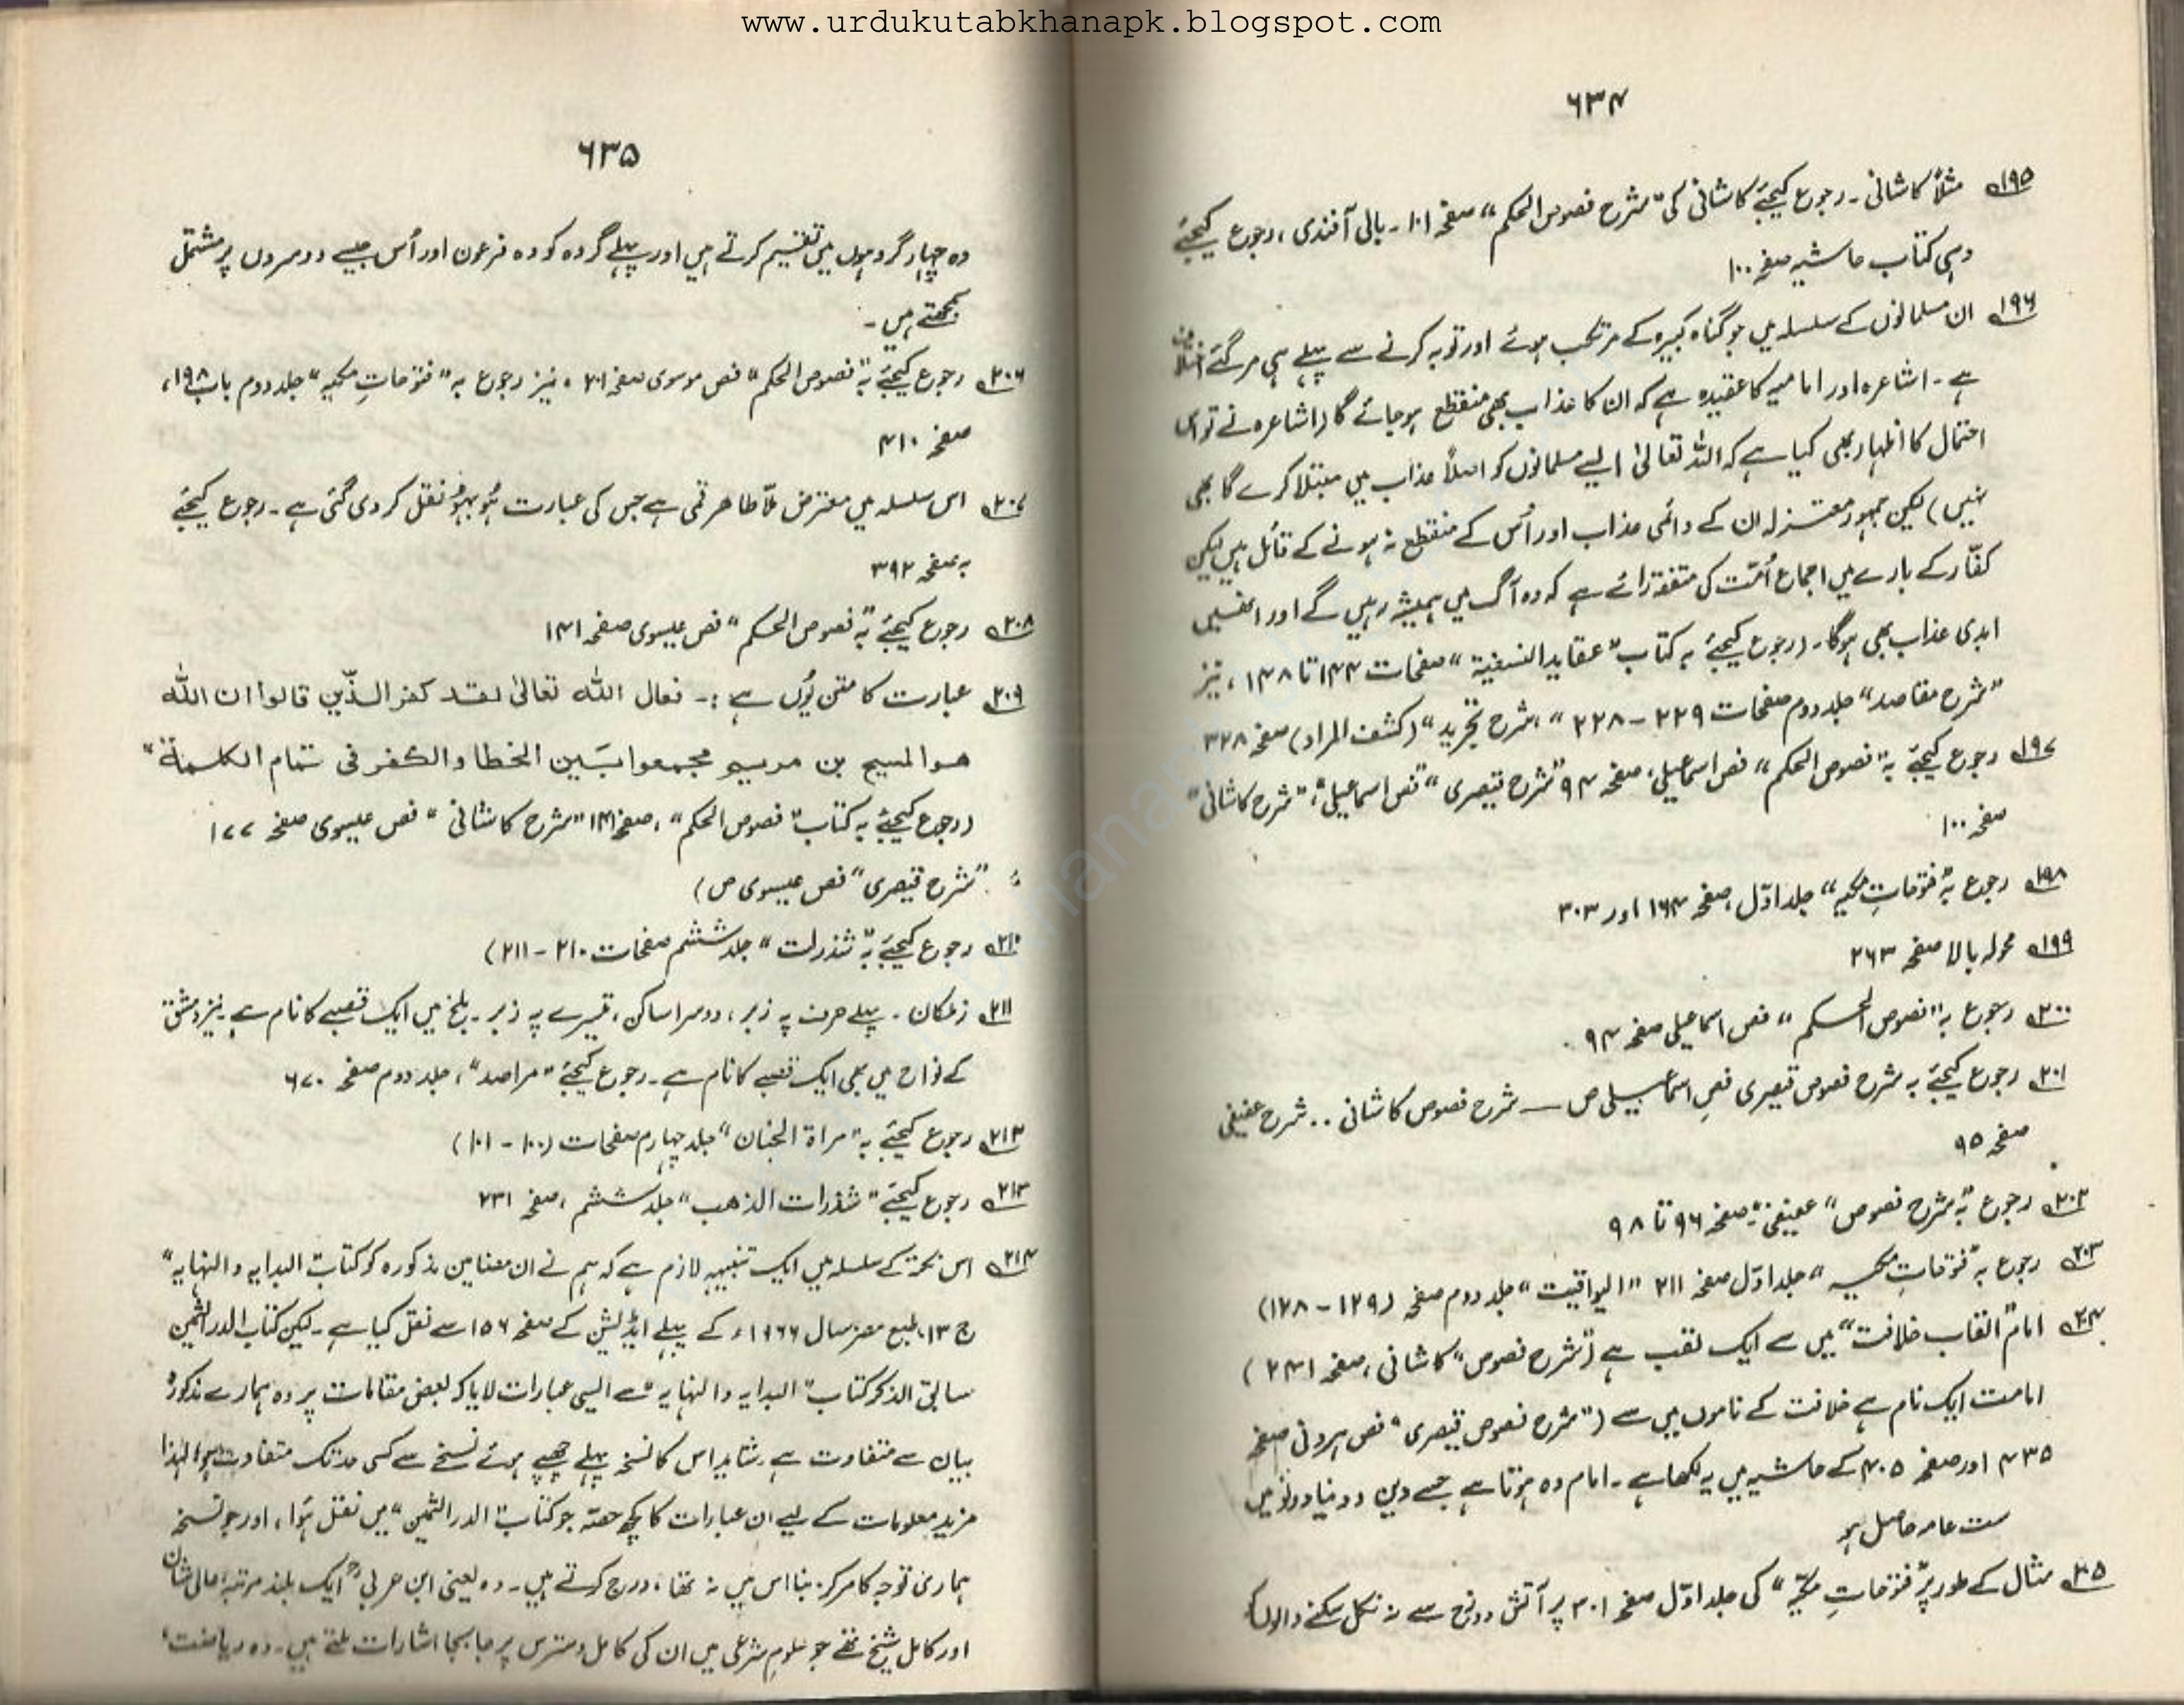 www.urdukutabkhanapk.blogspot.com
۶۳۴
۱۹۵ مثلاً کاشانی ۔ رجوع کیجئے کاشانی کی "شرح فصوص الحکم" صفحہ ۱۰۱ ۔ بالی آفندی ، رجوع کیجئے
وہی کتاب حاشیہ صفحہ ۱۰۰
۱۹۶ ان مسلمانوں کے سلسلہ میں جو گناہ کبیرہ کے مرتکب ہوئے اور توبہ کرنے سے پہلے ہی مر گئے اختلاف
ہے ۔ اشاعرہ اور امامیہ کا عقیدہ ہے کہ ان کا عذاب بھی منقطع ہو جائے گا (اشاعرہ نے تو اس
احتمال کا اظہار بھی کیا ہے کہ اللہ تعالیٰ ایسے مسلمانوں کو اصلاً عذاب میں مبتلا کرے گا بھی
نہیں) لیکن جمہور معتزلہ ان کے دائمی عذاب اور اُس کے منقطع نہ ہونے کے قائل ہیں لیکن
کفّار کے بارے میں اجماع اُمّت کی متفقہ رائے ہے کہ وہ آگ میں ہمیشہ رہیں گے اور انھیں
ابدی عذاب بھی ہوگا ۔ (رجوع کیجئے بہ کتاب "عقاید النسفیۃ" صفحات ۱۴۴ تا ۱۴۸ ، نیز
"شرح مقاصد" جلد دوم صفحات ۲۲۹ - ۲۲۸ " ، شرح تجرید" (کشف المراد) صفحہ ۳۲۸
۱۹۷ رجوع کیجئے بہ "فصوص الحکم" فص اسماعیلی ، صفحہ ۹۴ "شرح قیصری" "فص اسماعیلی" ، "شرح کاشانی"
صفحہ ۱۰۰
۱۹۸ رجوع بہ "فتوحاتِ مکیہ" جلد اوّل ، صفحہ ۱۶۴ اور ۳۰۳
۱۹۹ محولہ بالا صفحہ ۲۶۳
۲۰۰ رجوع بہ "فصوص الحکم" فص اسماعیلی صفحہ ۹۴ .
۲۰۱ رجوع کیجئے بہ شرح فصوص قیصری فصِ اسماعیلی ص — شرح فصوص کاشانی . . شرح عفیفی
صفحہ ۹۵
۲۰۲ رجوع بہ "شرح فصوص" عفیفی ، صفحہ ۹۶ تا ۹۸
۲۰۳ رجوع بہ "فتوحاتِ مکیہ" جلد اوّل صفحہ ۲۱۱ "الیواقیت" جلد دوم صفحہ (۱۲۹ - ۱۲۸)
۲۰۴ امام "القاب خلافت" میں سے ایک لقب ہے ("شرح فصوص" کاشانی ، صفحہ ۲۴۱)
امامت ایک نام ہے خلافت کے ناموں میں سے ("شرح فصوص قیصری" فص ہرونی صفحہ
۴۳۵ اور صفحہ ۴۰۵ کے حاشیہ میں یہ لکھا ہے ۔ امام وہ ہوتا ہے جسے دین و دنیا دونوں میں
ست عامہ حاصل ہو
۲۰۵ مثال کے طور پر "فتوحاتِ مکیّہ" کی جلد اوّل صفحہ ۳۰۱ پر آتش دوزخ سے نہ نکل سکنے والوں کو
۶۳۵
وہ چہار گروہوں میں تقسیم کرتے ہیں اور پہلے گروہ کو وہ فرعون اور اُس جیسے دوسروں پر مشتمل
سمجھتے ہیں ۔
۲۰۶ رجوع کیجئے بہ "فصوص الحکم" فص موسوی صفحہ ۲۰۱ ، نیز رجوع بہ "فتوحاتِ مکیہ" جلد دوم باب ۱۹۸ ،
صفحہ ۴۱۰
۲۰۷ اس سلسلہ میں معترض ملّا طاہر قمی ہے جس کی عبارت ہُو بہو نقل کر دی گئی ہے ۔ رجوع کیجئے
بہ صفحہ ۳۹۲
۲۰۸ رجوع کیجئے بہ "فصوص الحکم" فص عیسوی صفحہ ۱۴۱
۲۰۹ عبارت کا متن یُوں ہے :۔ فعال اللہ تعالیٰ لقد کفر الذّین قالوا ان اللہ
ھو المسیح بن مریم مجمعوا بَین الخطا والکفر فی تمام الکلمۃ"
(رجوع کیجئے بہ کتاب "فصوص الحکم" ، صفحہ ۱۴۱ "شرح کاشانی" فص عیسوی صفحہ ۱۷۷
"شرح قیصری" فص عیسوی ص)
۲۱۰ رجوع کیجئے بہ "شذرات" جلد ششم صفحات ۲۱۰ - ۲۱۱)
۲۱۱ زملکان ۔ پہلے حرف پہ زبر ، دوسرا ساکن ، تیسرے پہ زبر ۔ بلخ میں ایک قصبے کا نام ہے ۔ نیز دمشق
کے نواح میں بھی ایک قصبے کا نام ہے ۔ رجوع کیجئے "مراصد" ، جلد دوم صفحہ ۶۷۰
۲۱۲ رجوع کیجئے بہ "مراۃ الجنان" جلد چہارم صفحات (۱۰۰ - ۱۰۱)
۲۱۳ رجوع کیجئے "شذرات الذھب" جلد ششم ، صفحہ ۲۳۱
۲۱۴ اس نکتہ کے سلسلہ میں ایک تنبیہہ لازم ہے کہ ہم نے ان مضامین مذکورہ کو کتاب "البدایہ والنہایہ"
ج ۱۳ ، طبع مصر سال ۱۹۶۶ء کے پہلے ایڈیشن کے صفحہ ۱۵۶ سے نقل کیا ہے ۔ لیکن کتاب الدر الثمین
سابق الذکر کتاب "البدایہ والنہایہ" سے ایسی عبارات لایا کہ بعض مقامات پر وہ ہمارے مذکورہ
بیان سے متفاوت ہے ۔ شاید اس کا نسخہ پہلے چھپے ہوئے نسخے سے کسی حد تک متفاوت ہو ۔ لہٰذا
مزید معلومات کے لیے ان عبارات کا کچھ حصّہ جو کتاب "الدر الثمین" میں نقل ہُوا ، اور جو نسخہ
ہماری توجہ کا مرکز بنا اس میں نہ تھا ، درج کرتے ہیں ۔ وہ یعنی ابن عربیؒ ایک بلند مرتبہ عالی شان
اور کامل شیخ تھے جو علومِ شرعی میں ان کی کامل دسترس پر جا بجا اشارات ملتے ہیں ۔ وہ ریاضت ،